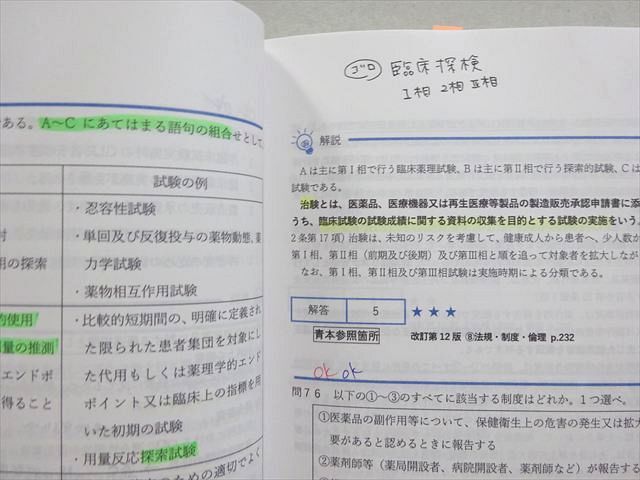 ある。A～C にあてはまる語句の組合せとして
試験の例
・忍容性試験
・単回及び反復投与の薬物動態、薬
力学試験
・薬物相互作用試験
の探索
的使用
量の推測
エンドポ
得ること
・比較的短期間の、明確に定義され
た限られた患者集団を対象にし
た代用もしくは薬理学的エンド
ポイント又は臨床上の指標を用
いた初期の試験
・用量反応探索試験
のための適切でよく
ゴロ 臨床探検
I相 2相 III相
解説
Aは主に第Ⅰ相で行う臨床薬理試験、Bは主に第Ⅱ相で行う探索的試験、Cは
試験である。
治験とは、医薬品、医療機器又は再生医療等製品の製造販売承認申請書に添
うち、臨床試験の試験成績に関する資料の収集を目的とする試験の実施をいう。
2条第17項）治験は、未知のリスクを考慮して、健康成人から患者へ、少人数か
第Ⅰ相、第Ⅱ相（前期及び後期）及び第Ⅲ相と順を追って対象者を拡大しなが
なお、第Ⅰ相、第Ⅱ相及び第Ⅲ相試験は実施時期による分類である。
解答 5 ★★★
青本参照箇所 改訂第12版 ⑧法規・制度・倫理 p.232
ok ok
問76 以下の①～③のすべてに該当する制度はどれか。1つ選べ。
①医薬品の副作用等について、保健衛生上の危害の発生又は拡大
要があると認めるときに報告する
②薬剤師等（薬局開設者、病院開設者、薬剤師など）が報告す